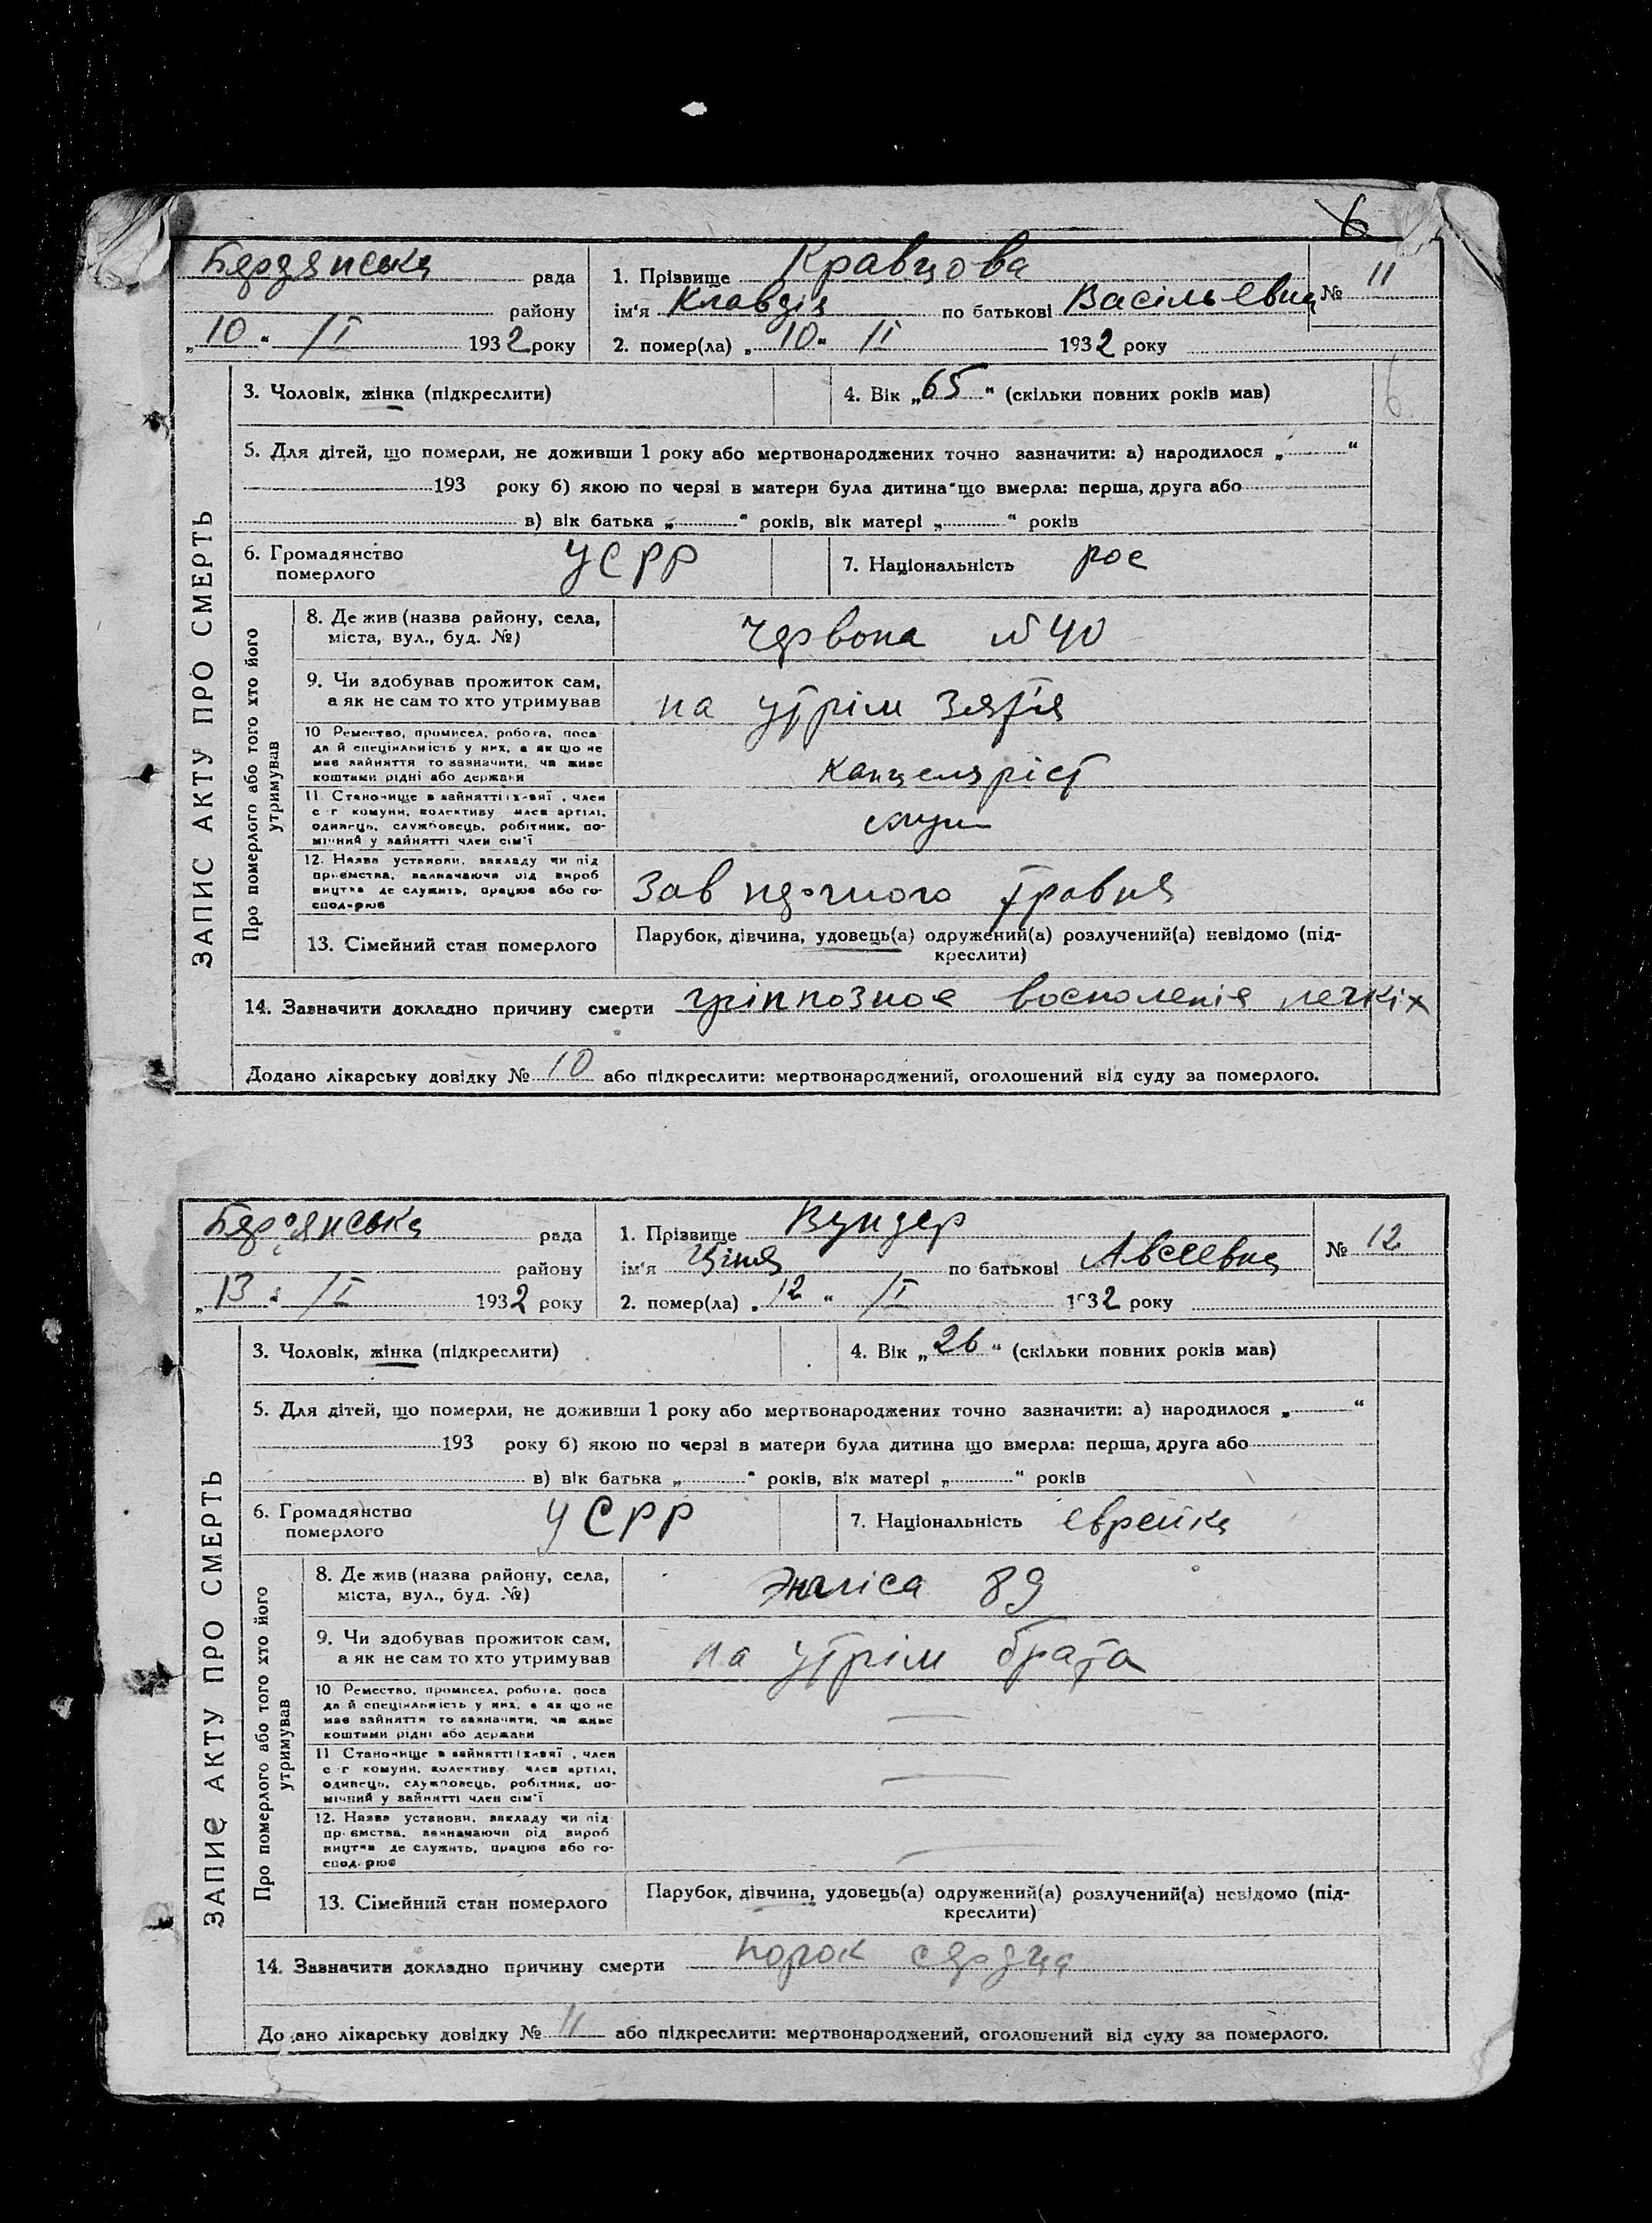 6
Бердянська рада
1. Прізвище Кравцова
№ 11
району
ім'я Клавдія по батькові Васільевна
„10“ II 1932 року
2. помер(ла) „10“ II 1932 року
ЗАПИС АКТУ ПРО СМЕРТЬ
3. Чоловік, жінка (підкреслити)
4. Вік „65“ (скільки повних років мав)
5. Для дітей, що померли, не доживши 1 року або мертвонароджених точно зазначити: а) народилося „ “
193 року б) якою по черзі в матери була дитина що вмерла: перша, друга або
в) вік батька „ “ років, вік матері „ “ років
6. Громадянство померлого УСРР
7. Національність рос
Про померлого або того хто його утримував
8. Де жив (назва району, села,
міста, вул., буд. №)
Червона №40
9. Чи здобував прожиток сам,
а як не сам то хто утримував
на утрім Зятя
10 Ремество, промисел, робота, поса
да й спеціяльність у них, а як що не
має зайняття то зазначити, чи живе
коштами рідні або держави
Канцеляріст
11. Становище в зайнятті , член
с г комуни, колективу член артілі,
одинець, службовець, робітник, по-
мічний у зайнятті член сім'ї
служ
12. Назва установи, закладу чи під
приємства, зазначаючи рід вироб
ництва де служить, працює або го-
сподарює
Зав травня
13. Сімейний стан померлого
Парубок, дівчина, удовець(а) одружений(а) розлучений(а) невідомо (під-
креслити)
14. Зазначити докладно причину смерти гріппозное восполенія легкіх
Додано лікарську довідку № 10 або підкреслити: мертвонароджений, оголошений від суду за померлого.
Бердянська рада
1. Прізвище Вундер
№ 12
району
ім'я по батькові Авсеевна
„13“ II 1932 року
2. помер(ла) „12“ II 1932 року
ЗАПИС АКТУ ПРО СМЕРТЬ
3. Чоловік, жінка (підкреслити)
4. Вік „26“ (скільки повних років мав)
5. Для дітей, що померли, не доживши 1 року або мертвонароджених точно зазначити: а) народилося „ “
193 року б) якою по черзі в матери була дитина що вмерла: перша, друга або
в) вік батька „ “ років, вік матері „ “ років
6. Громадянство померлого УСРР
7. Національність еврейка
Про померлого або того хто його утримував
8. Де жив (назва району, села,
міста, вул., буд. №)
Энгліса 89
9. Чи здобував прожиток сам,
а як не сам то хто утримував
на утрім брата
10 Ремество, промисел, робота, поса
да й спеціяльність у них, а як що не
має зайняття то зазначити, чи живе
коштами рідні або держави
—
11 Становище в зайнятті , член
с г комуни, колективу член артілі,
одинець, службовець, робітник, по-
мічний у зайнятті член сім'ї
—
12. Назва установи, закладу чи під
приємства, зазначаючи рід вироб
ництва де служить, працює або го-
сподарює
—
13. Сімейний стан померлого
Парубок, дівчина, удовець(а) одружений(а) розлучений(а) невідомо (під-
креслити)
14. Зазначити докладно причину смерти порок сердца
Додано лікарську довідку № 11 або підкреслити: мертвонароджений, оголошений від суду за померлого.